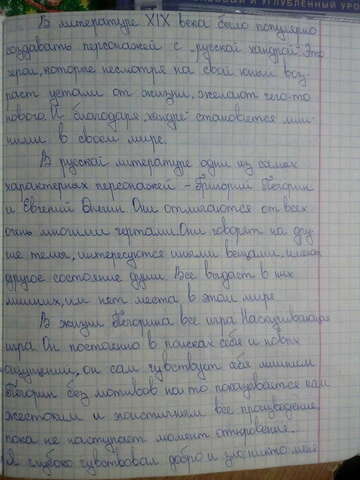 В литературе XIX века было популярно
создавать персонажей с „русской хандрой". Это
герои, которые несмотря на свой юный воз-
раст устали от жизни, желают чего-то
нового. И благодаря „хандре" становятся лиш-
ними в своём мире.
В русской литературе одни из самых
характерных персонажей - Григорий Печорин
и Евгений Онегин. Они отличаются от всех
очень многими чертами. Они говорят на дру-
гие темы, интересуются иными вещами, имеют
другое состояние души. Всё выдаёт в них
лишних, им нет места в этом мире.
В жизни Печорина всё игра. Наскучивающая
игра. Он постоянно в поисках себя и новых
ощущений, он сам чувствует себя лишним.
Печорин без мотивов на то показывается нам
жестоким и эгоистичным всё произведение,
пока не наступает момент откровения.
Я глубоко чувствовал добро и зло; никто меня